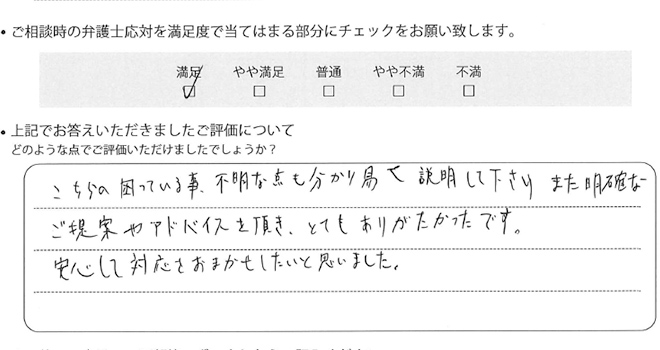 • ご相談時の弁護士応対を満足度で当てはまる部分にチェックをお願い致します。
満足 やや満足 普通 やや不満 不満
☑ □ □ □ □
• 上記でお答えいただきましたご評価について
どのような点でご評価いただけましたでしょうか？
こちらの困っている事、不明な点も分かり易く説明して下さり また明確な
ご提案やアドバイスを頂き、とてもありがたかったです。
安心して対応をおまかせしたいと思いました。